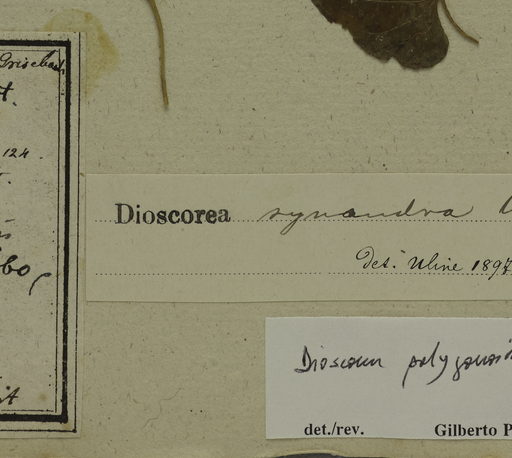 Grisebach
t.
124.
bo,
it
Dioscorea synandra
det. Uline 1897
Dioscorea
det./rev. Gilberto P